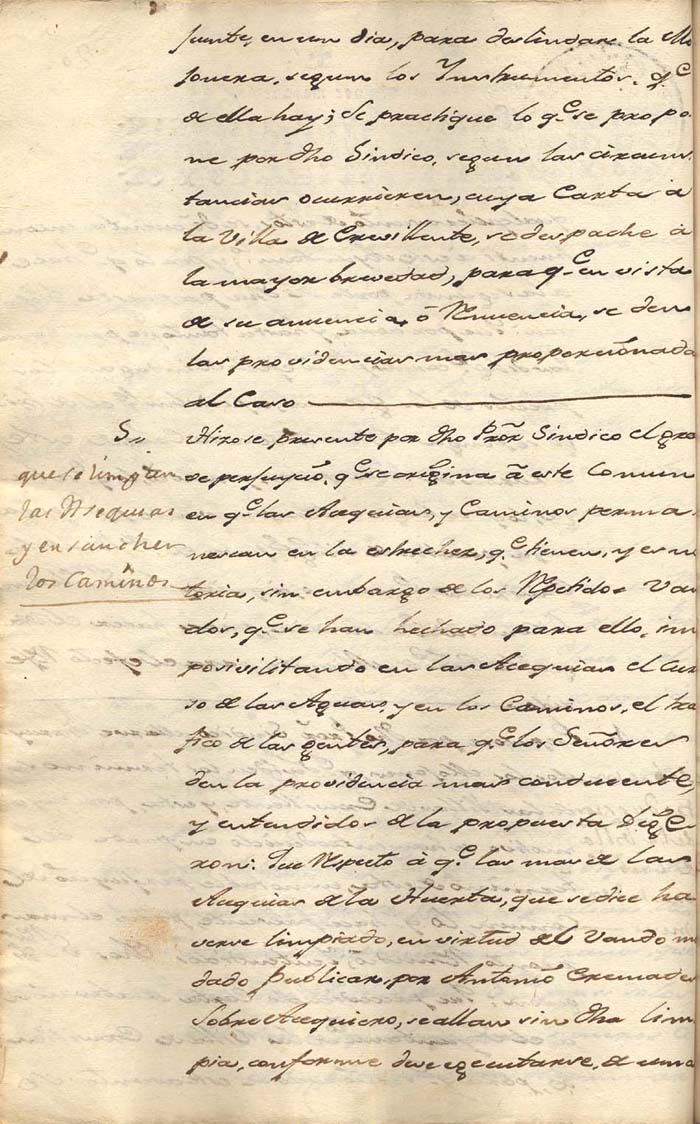 junte, en un dia, para deslindar la Mo
jonera, segun los Ynstrumentos, q.e
de ella hay; Se practique lo q.e se propo
ne por dho Sindico, segun las circuns
tancias ocurrieren, cuya Carta à
la Villa de Crevillente, se despache à
la mayor brevedad, para q.e en vista
de su anuencia, ò Renuencia, se den
las providencias mas proporcionada
al Caso
S,,
que se limpian
las Asequias
y ensanchen
los Caminos
Hizose presente por dho Pror Sindico el gra
de perjuycio, q.e se origina à este Comun
en q.e las Acequias, y Caminos perma
nescan en la estrechez, q.e tienen, y es no
toria, sin embargo de los Repetidos Van
dos, q.e se han hechado para ello, im
posivilitando en las Acequias el Cur
so de las Aguas, y en los Caminos, el tra
fico de las gentes, para q.e los Señores
den la providencia mas conducente,
y entendidos de la propuesta
ron: Que Respeto à q.e las mas de las
Azequias de la Huerta, que se dice ha
verse limpiado, en virtud del Vando man
dado Publicar, por Antonio Cremades
Sobre Acequiero, se allan sin dha lim
pia, conforme deve egecutarse, de una